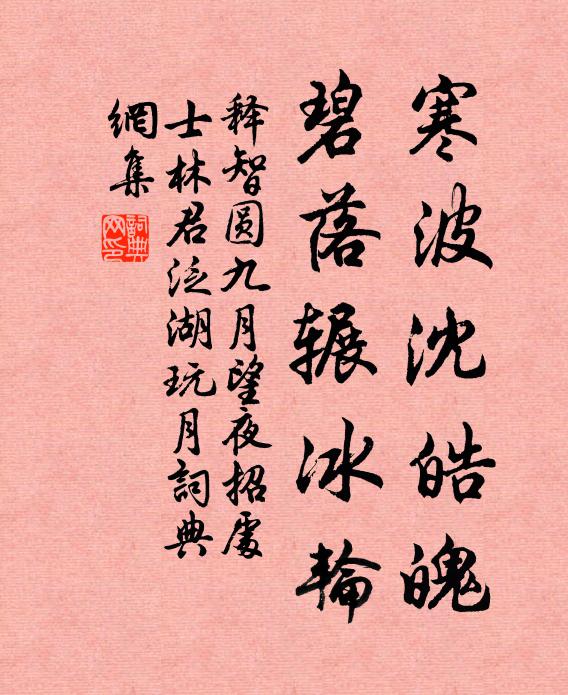 寒波沈皓魄
碧落辗冰輪
释智圆九月望夜招處
士林君泛湖玩月詞典
網集
詞典网印